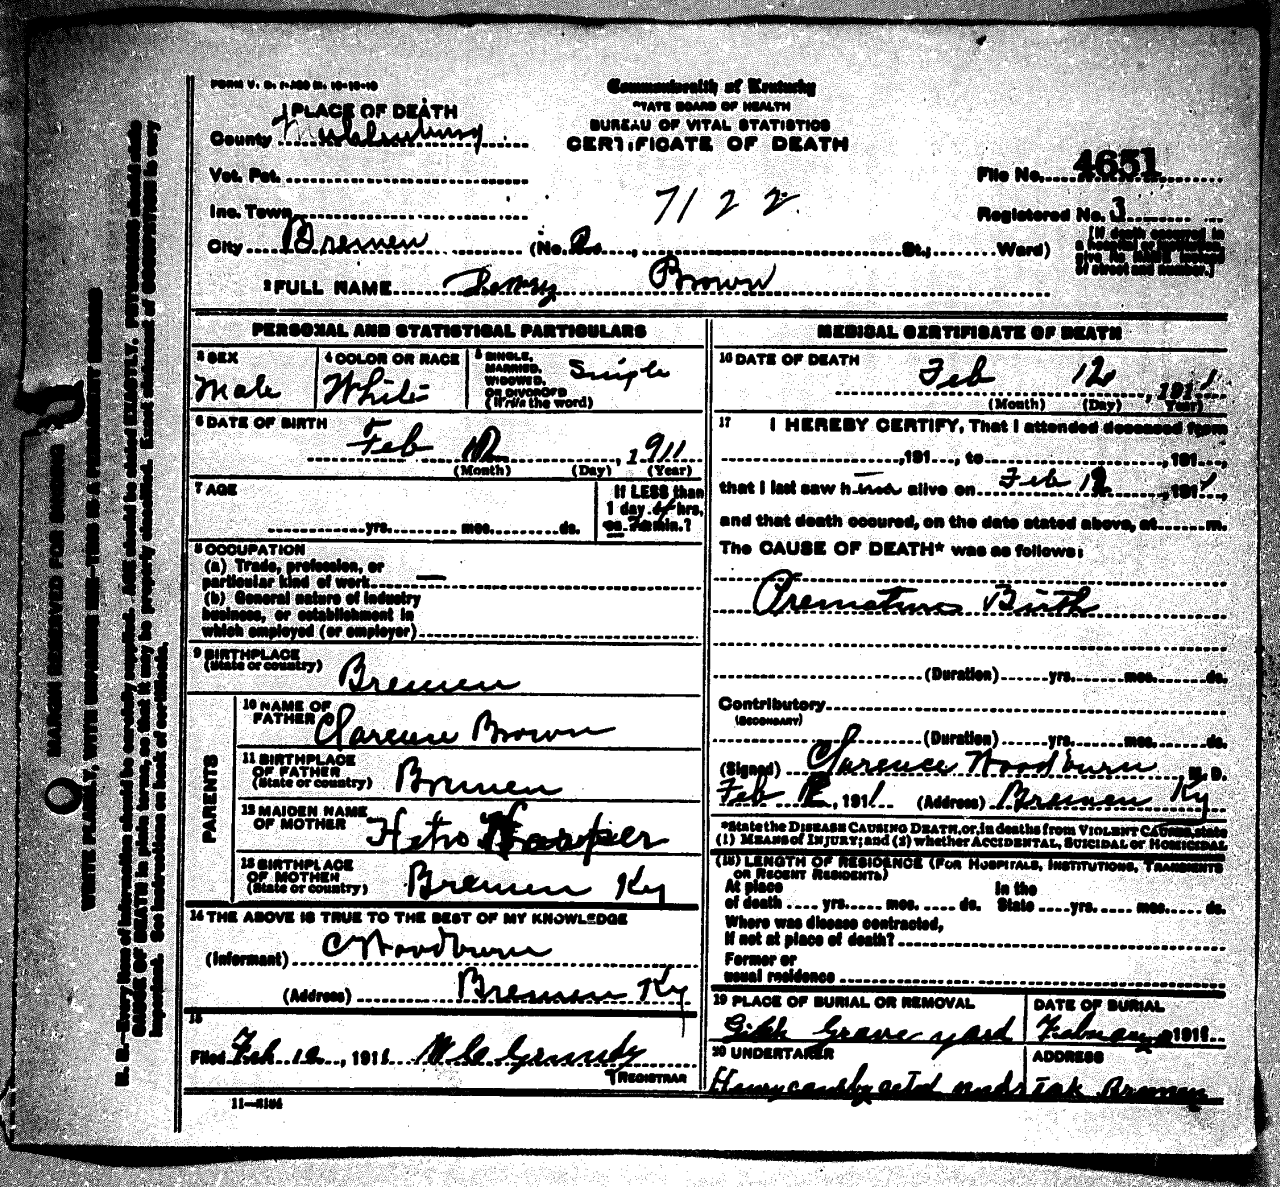 FORM V. S. 1-A50 M. 10-15-10
Commonwealth of Kentucky
STATE BOARD OF HEALTH
BUREAU OF VITAL STATISTICS
CERTIFICATE OF DEATH
1 PLACE OF DEATH
County Muhlenburg
Vot. Pct.
Inc. Town
City Bremen (No. 2, St.; Ward)
7122
File No. 4651
Registered No. 3
[If death occurred in
a hospital or institution,
give its NAME instead
of street and number.]
2 FULL NAME Brown
PERSONAL AND STATISTICAL PARTICULARS
3 SEX
Male
4 COLOR OR RACE
White
5 SINGLE,
MARRIED,
WIDOWED,
OR DIVORCED
(Write the word)
Single
6 DATE OF BIRTH
Feb 12, 1911
(Month) (Day) (Year)
7 AGE
yrs. mos. ds.
If LESS than
1 day hrs.
or min.?
8 OCCUPATION
(a) Trade, profession, or
particular kind of work —
(b) General nature of industry
business, or establishment in
which employed (or employer)
9 BIRTHPLACE
(State or country)
Bremen
PARENTS
10 NAME OF
FATHER Clarence Brown
11 BIRTHPLACE
OF FATHER
(State or country)
Bremen
12 MAIDEN NAME
OF MOTHER Harper
13 BIRTHPLACE
OF MOTHER
(State or country)
Bremen Ky
14 THE ABOVE IS TRUE TO THE BEST OF MY KNOWLEDGE
(Informant) C Woodburn
(Address) Bremen Ky
15
Filed Feb 12, 1911 Grundy
REGISTRAR
11—3184
MEDICAL CERTIFICATE OF DEATH
16 DATE OF DEATH
Feb 12, 1911
(Month) (Day) (Year)
17 I HEREBY CERTIFY, That I attended deceased from
, 191 , to , 191 ,
that I last saw him alive on Feb 12, 1911,
and that death occured, on the date stated above, at m.
The CAUSE OF DEATH* was as follows:
Premature Birth
(Duration) yrs. mos. ds.
Contributory
(SECONDARY)
(Duration) yrs. mos. ds.
(Signed) Clarence Woodburn M. D.
Feb 12, 1911 (Address) Bremen Ky
*State the DISEASE CAUSING DEATH, or, in deaths from VIOLENT CAUSES, state
(1) MEANS of INJURY; and (2) whether ACCIDENTAL, SUICIDAL or HOMICIDAL
(18) LENGTH OF RESIDENCE (FOR HOSPITALS, INSTITUTIONS, TRANSIENTS
OR RECENT RESIDENTS)
At place
of death yrs. mos. ds.
In the
State yrs. mos. ds.
Where was disease contracted,
If not at place of death?
Former or
usual residence
19 PLACE OF BURIAL OR REMOVAL
Grave yard
DATE OF BURIAL
1911
20 UNDERTAKER
ADDRESS
Bremen
MARGIN RESERVED FOR BINDING
WRITE PLAINLY, WITH UNFADING INK—THIS IS A PERMANENT RECORD
N. B.—Every item of information should be carefully supplied. AGE should be stated EXACTLY. PHYSICIANS should state
CAUSE OF DEATH in plain terms, so that it may be properly classified. Exact statement of OCCUPATION is very
important. See instructions on back of certificate.